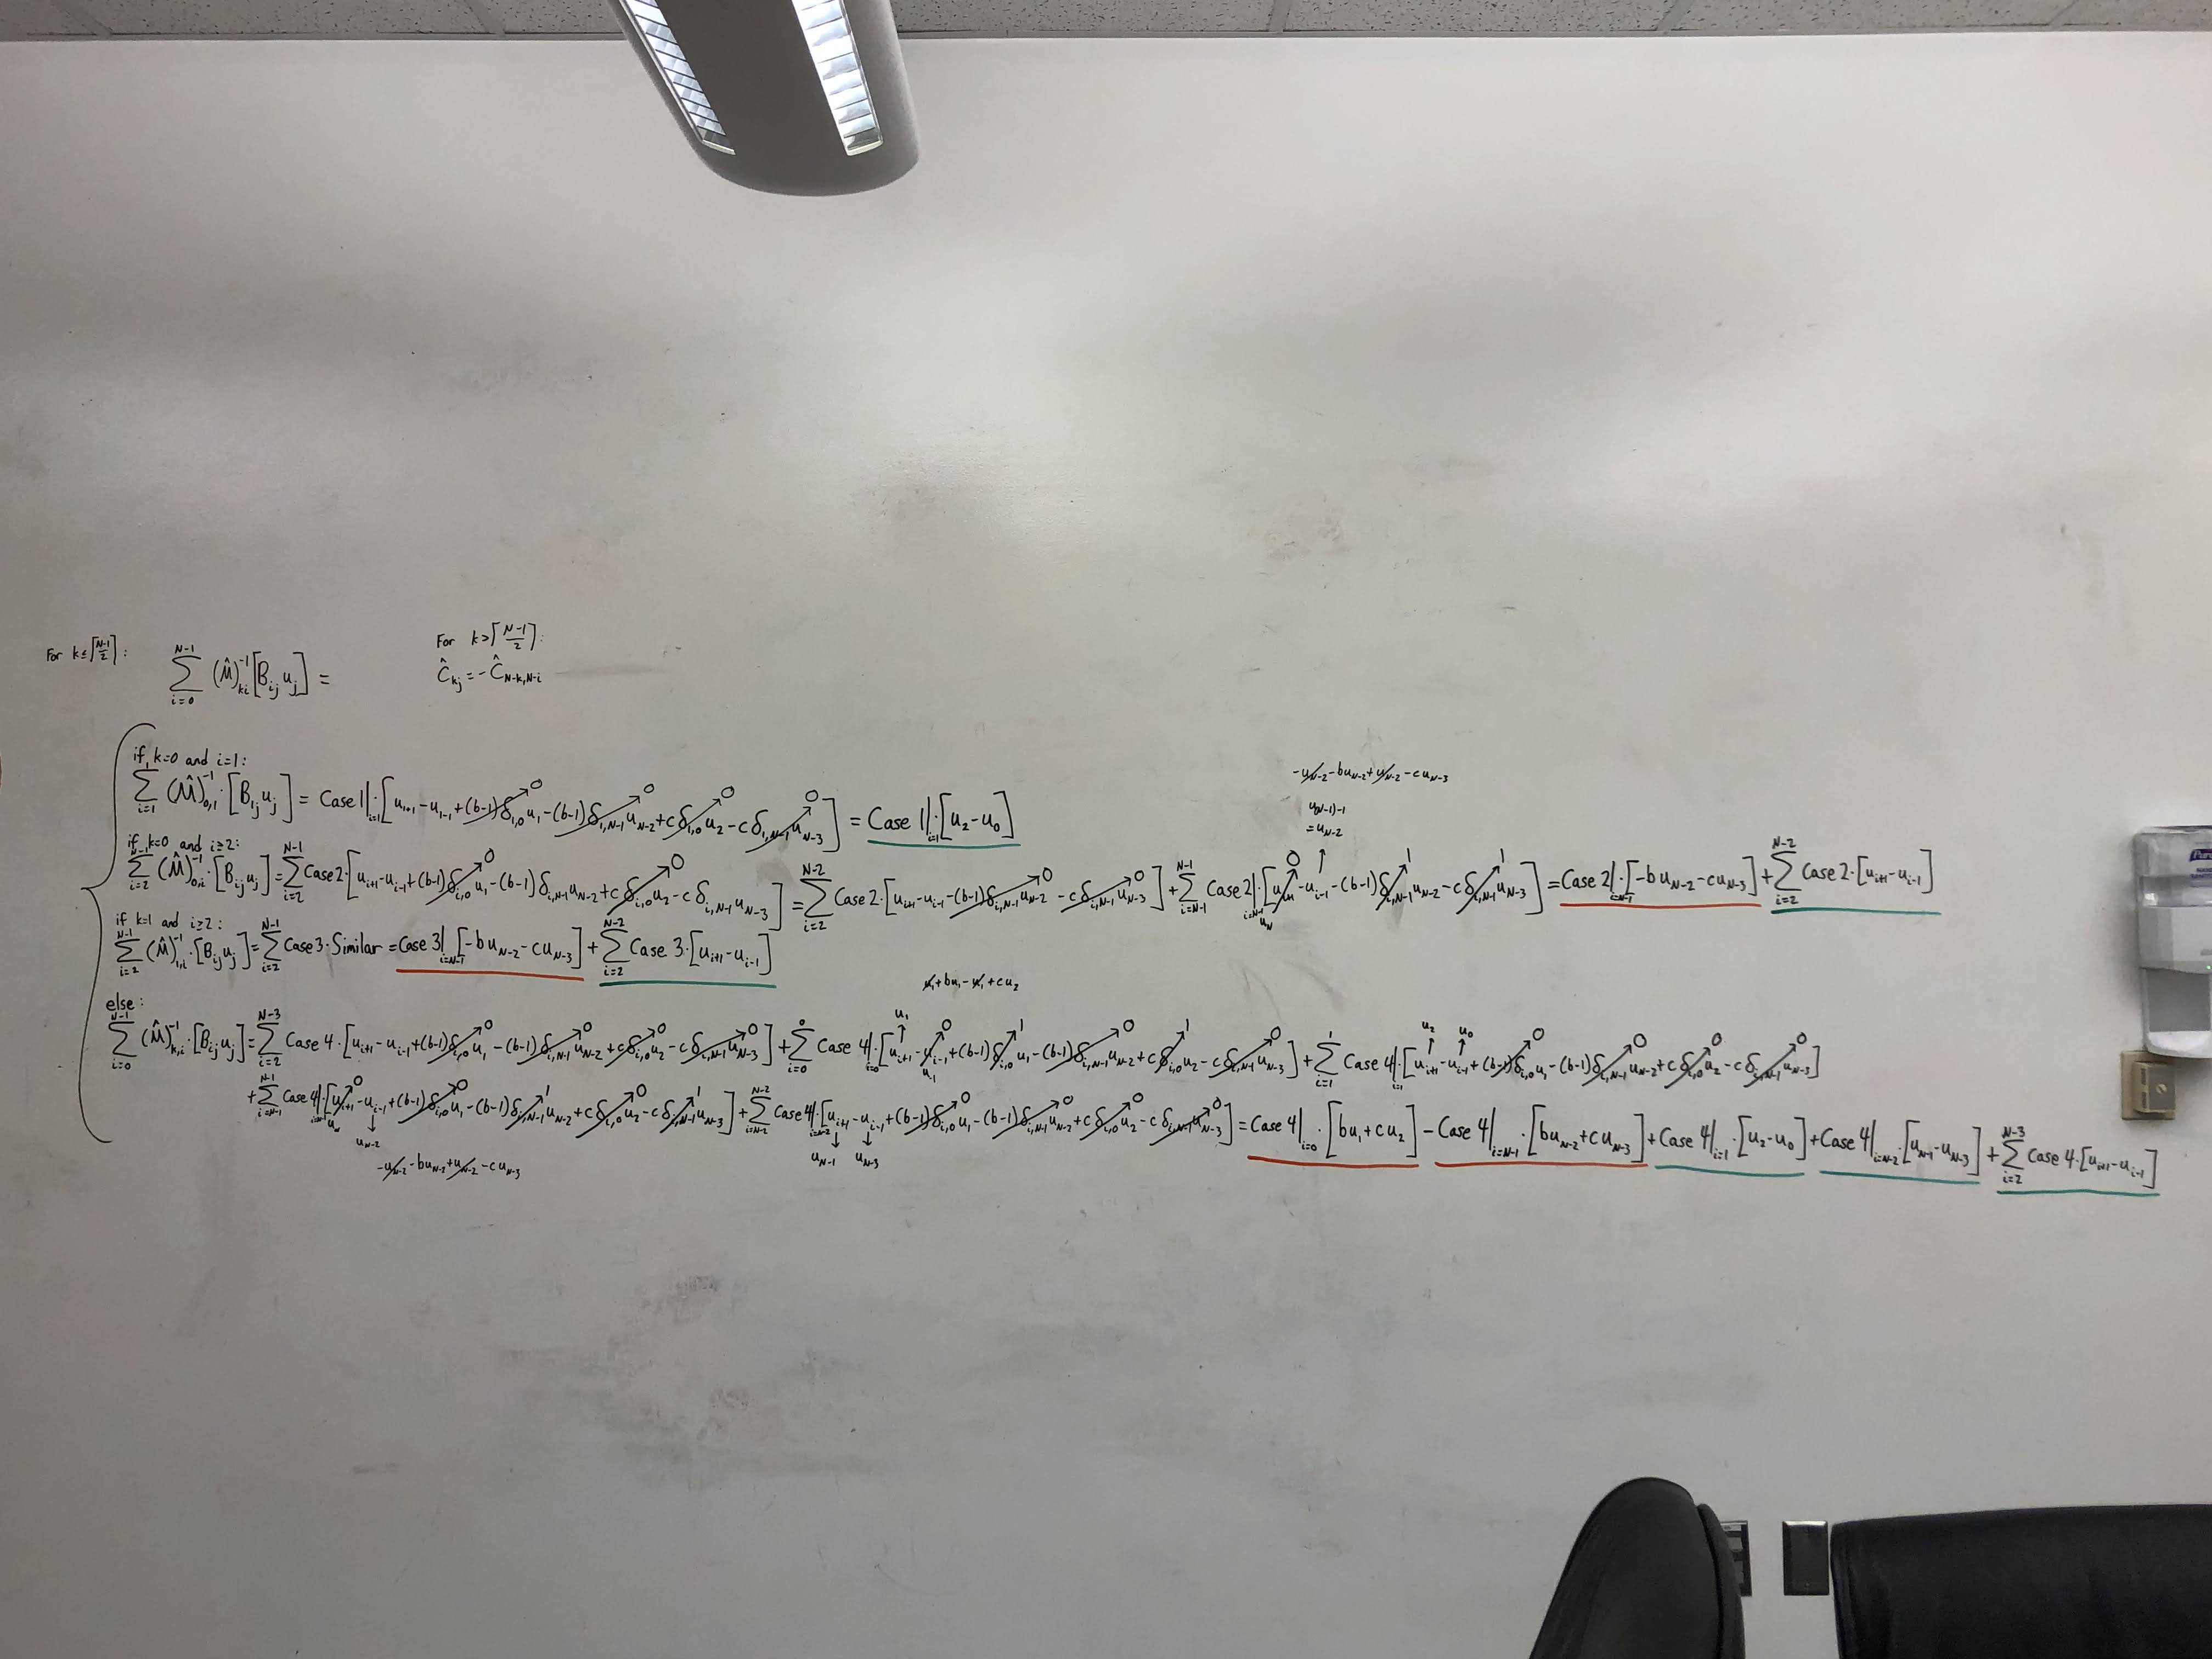 For k≤⌈(N-1)/2⌉: ∑_{i=0}^{N-1} (M̂)^{-1}_{ki} [B_{ij} u_j] =
For k>⌈(N-1)/2⌉:
Ĉ_{kj} = -Ĉ_{N-k,N-i}
if k=0 and i=1:
∑_{i=1} (M̂)^{-1}_{0,1}·[B_{1j} u_j] = Case 1|_{i=1}·[u_{1+1} - u_{1-1} + (b-1)δ_{1,0}u_1 - (b-1)δ_{1,N-1}u_{N-2} + cδ_{1,0}u_2 - cδ_{1,N-1}u_{N-3}] = Case 1|_{i=1}·[u_2 - u_0]
0 0 0 0
-u_{N-2} - bu_{N-2} + u_{N-2} - cu_{N-3}
u_{(N-1)-1}
= u_{N-2}
if k=0 and i≥2:
∑_{i=2}^{N-1} (M̂)^{-1}_{0,i}·[B_{ij} u_j] = ∑_{i=2}^{N-1} Case 2·[u_{i+1} - u_{i-1} + (b-1)δ_{i,0}u_1 - (b-1)δ_{i,N-1}u_{N-2} + cδ_{i,0}u_2 - cδ_{i,N-1}u_{N-3}] = ∑_{i=2}^{N-2} Case 2·[u_{i+1} - u_{i-1} - (b-1)δ_{i,N-1}u_{N-2} - cδ_{i,N-1}u_{N-3}] + ∑_{i=N-1}^{N-1} Case 2|_{i=N-1}·[u_{i+1} - u_{i-1} - (b-1)δ_{i,N-1}u_{N-2} - cδ_{i,N-1}u_{N-3}] = Case 2|_{i=N-1}·[-bu_{N-2} - cu_{N-3}] + ∑_{i=2}^{N-2} Case 2·[u_{i+1} - u_{i-1}]
0 0 0 0 0 1 1
u_N
if k=1 and i≥2:
∑_{i=2}^{N-1} (M̂)^{-1}_{1,i}·[B_{ij} u_j] = ∑_{i=2}^{N-1} Case 3·Similar = Case 3|_{i=N-1}·[-bu_{N-2} - cu_{N-3}] + ∑_{i=2}^{N-2} Case 3·[u_{i+1} - u_{i-1}]
u_1 + bu_1 - u_1 + cu_2
else:
∑_{i=0}^{N-1} (M̂)^{-1}_{k,i}·[B_{ij} u_j] = ∑_{i=2}^{N-3} Case 4·[u_{i+1} - u_{i-1} + (b-1)δ_{i,0}u_1 - (b-1)δ_{i,N-1}u_{N-2} + cδ_{i,0}u_2 - cδ_{i,N-1}u_{N-3}] + ∑_{i=0}^{0} Case 4|_{i=0}·[u_{i+1} - u_{i-1} + (b-1)δ_{i,0}u_1 - (b-1)δ_{i,N-1}u_{N-2} + cδ_{i,0}u_2 - cδ_{i,N-1}u_{N-3}] + ∑_{i=1}^{1} Case 4|_{i=1}·[u_{i+1} - u_{i-1} + (b-1)δ_{i,0}u_1 - (b-1)δ_{i,N-1}u_{N-2} + cδ_{i,0}u_2 - cδ_{i,N-1}u_{N-3}]
0 0 0 0 u_1 0 1 0 1 0 u_2 u_0 0 0 0 0
u_{-1}
+ ∑_{i=N-1}^{N-1} Case 4|_{i=N-1}·[u_{i+1} - u_{i-1} + (b-1)δ_{i,0}u_1 - (b-1)δ_{i,N-1}u_{N-2} + cδ_{i,0}u_2 - cδ_{i,N-1}u_{N-3}] + ∑_{i=N-2}^{N-2} Case 4|_{i=N-2}·[u_{i+1} - u_{i-1} + (b-1)δ_{i,0}u_1 - (b-1)δ_{i,N-1}u_{N-2} + cδ_{i,0}u_2 - cδ_{i,N-1}u_{N-3}] = Case 4|_{i=0}·[bu_1 + cu_2] - Case 4|_{i=N-1}·[bu_{N-2} + cu_{N-3}] + Case 4|_{i=1}·[u_2 - u_0] + Case 4|_{i=N-2}·[u_{N-1} - u_{N-3}] + ∑_{i=2}^{N-3} Case 4·[u_{i+1} - u_{i-1}]
0 0 1 0 1 0 0 0 0
u_N u_{N-2} u_{N-1} u_{N-3}
-u_{N-2} - bu_{N-2} + u_{N-2} - cu_{N-3}